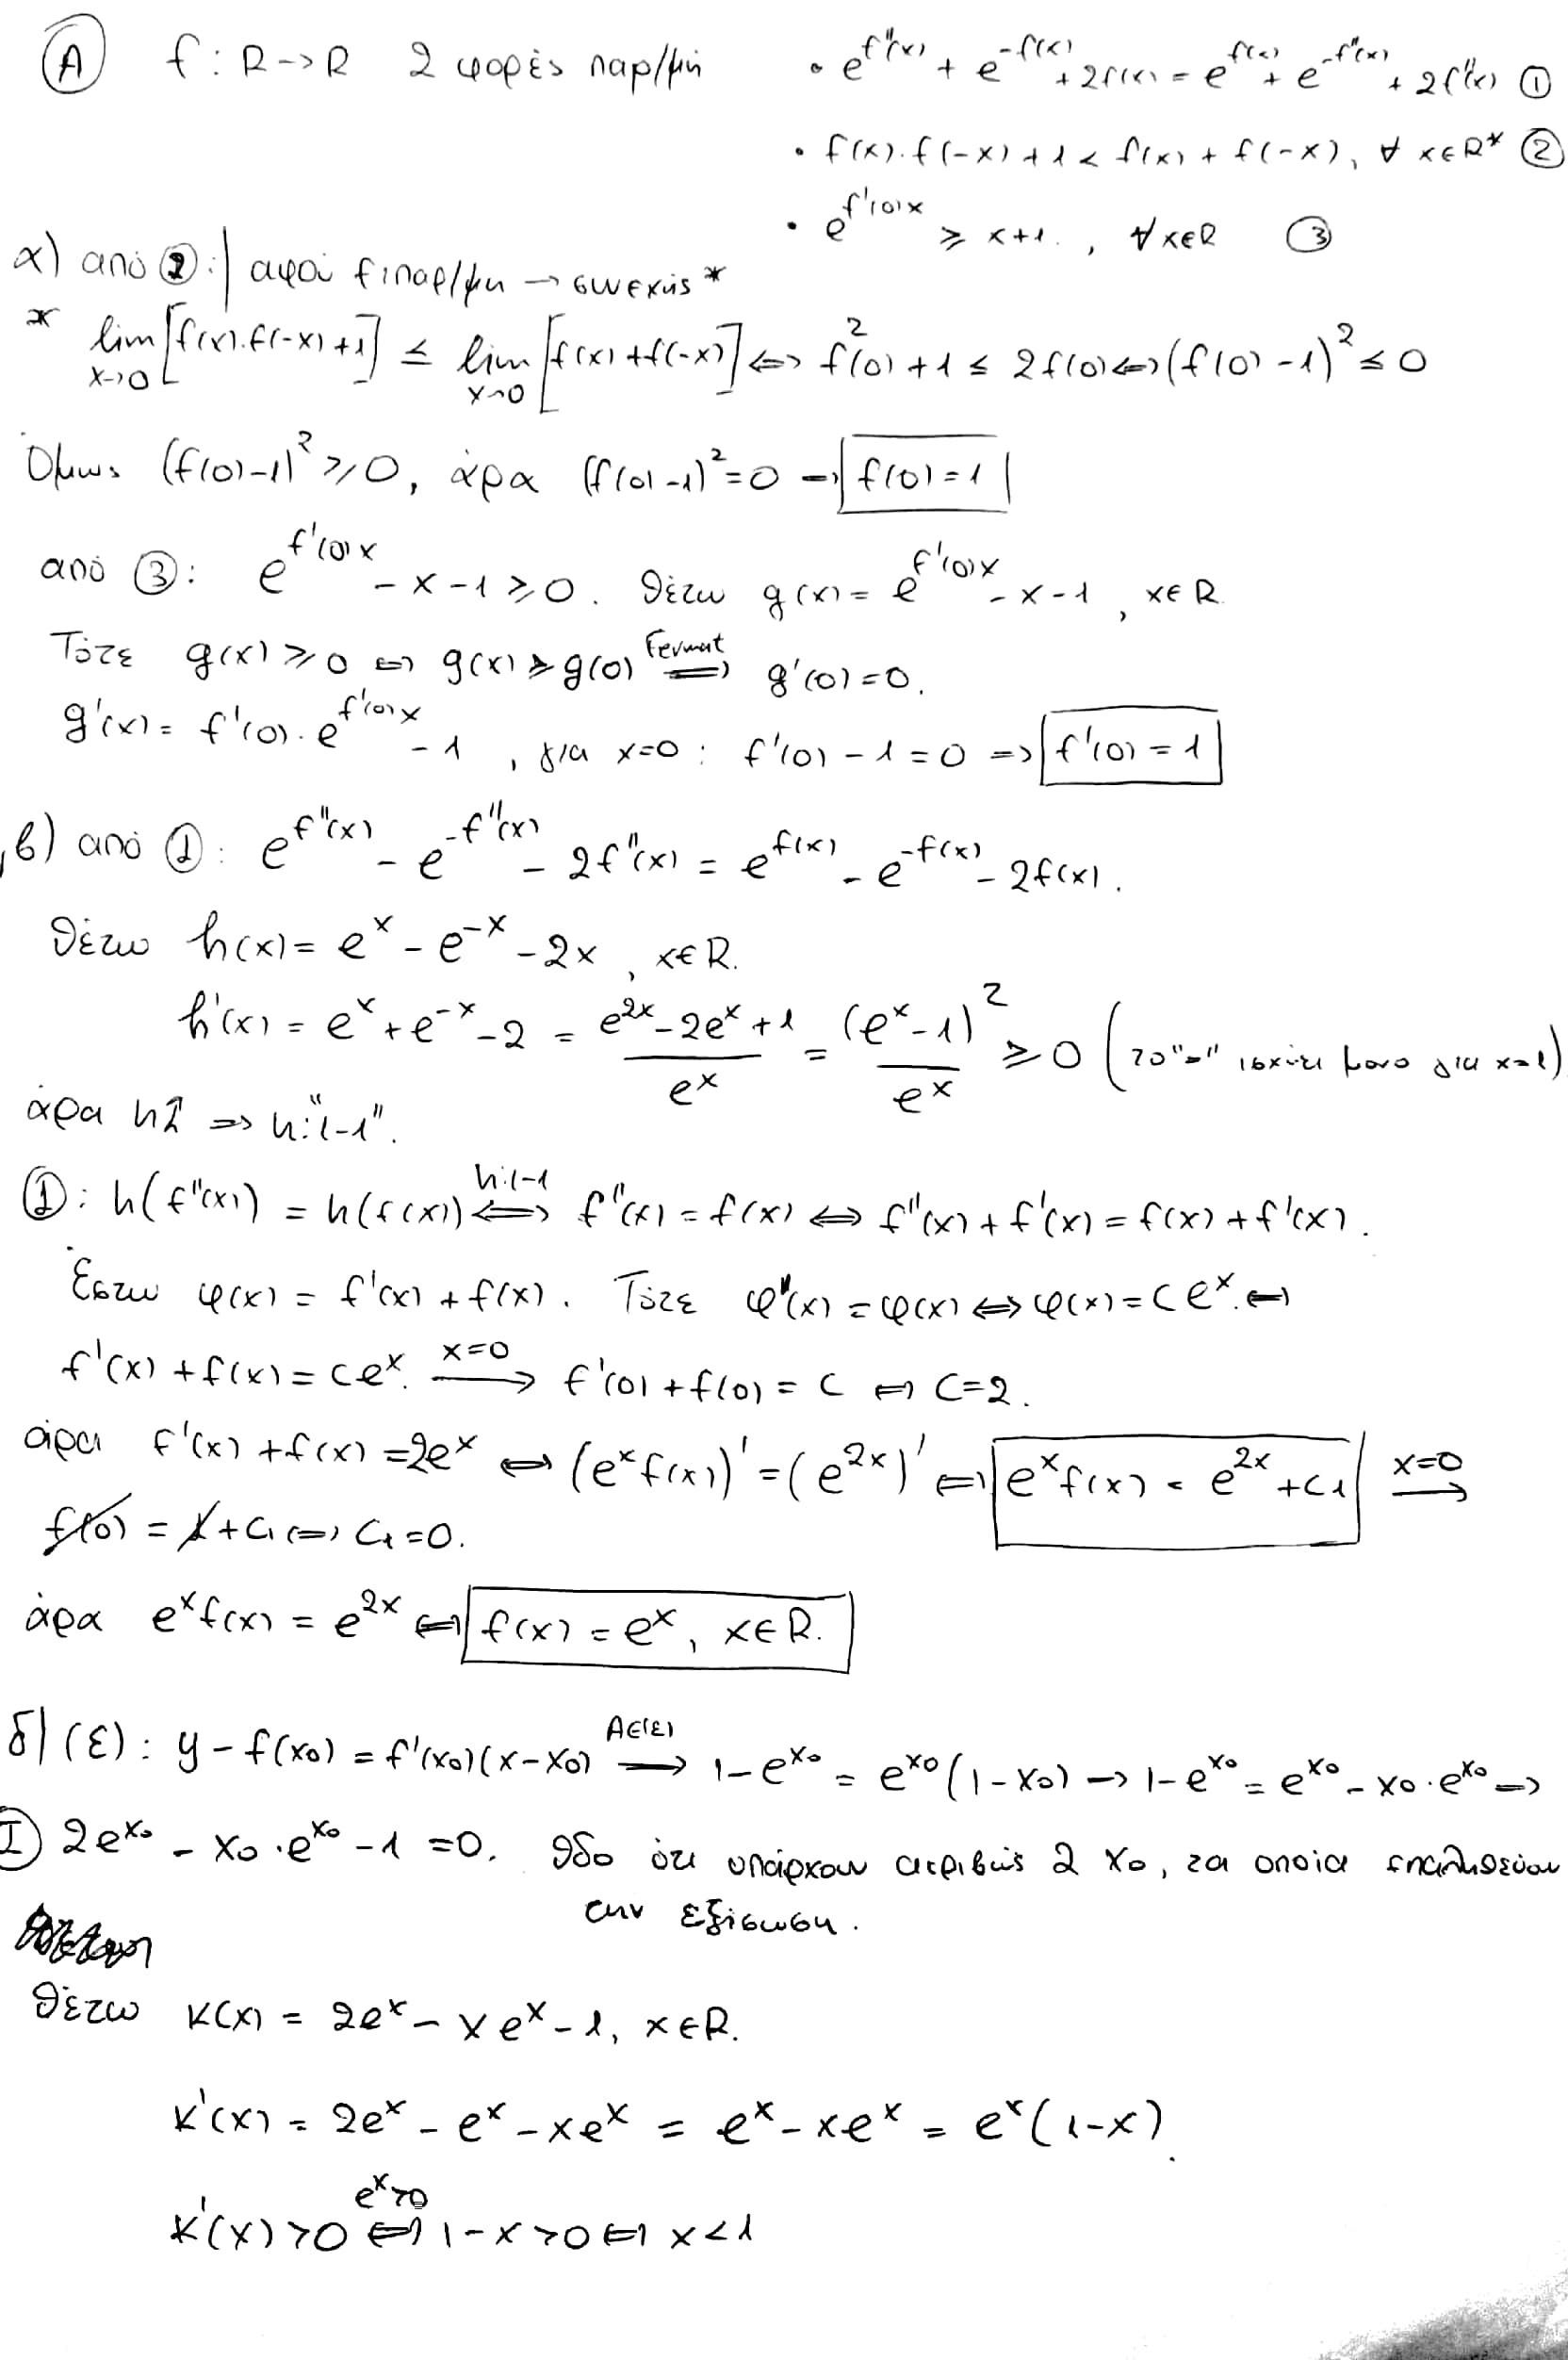 Α f: R->R 2 φορές παρ/μη • e^{f''(x)} + e^{-f(x)} + 2f(x) = e^{f(x)} + e^{-f''(x)} + 2f''(x) ①
• f(x).f(-x)+1 < f(x) + f(-x), ∀ x∈R* ②
• e^{f'(0)x} ≥ x+1., ∀ x∈R ③
α) από ②: | αφού f παρ/μη → συνεχής *
* lim_{x→0} [f(x).f(-x)+1] ≤ lim_{x→0} [f(x)+f(-x)] <=> f²(0)+1 ≤ 2f(0) <=> (f(0)-1)² ≤ 0
Όμως (f(0)-1)² ≥ 0, άρα (f(0)-1)² = 0 → f(0)=1
από ③: e^{f'(0)x} - x - 1 ≥ 0. Θέτω g(x) = e^{f'(0)x} - x - 1, x∈R.
Τότε g(x) ≥ 0 <=> g(x) ≥ g(0) =Fermat=> g'(0)=0.
g'(x) = f'(0).e^{f'(0)x} - 1, για x=0: f'(0) - 1 = 0 => f'(0) = 1
β) από ①: e^{f''(x)} - e^{-f''(x)} - 2f''(x) = e^{f(x)} - e^{-f(x)} - 2f(x).
Θέτω h(x) = e^x - e^{-x} - 2x, x∈R.
h'(x) = e^x + e^{-x} - 2 = (e^{2x} - 2e^x + 1)/e^x = (e^x - 1)²/e^x ≥ 0 (το "=" ισχύει μόνο για x=1)
άρα h↑ => h: "1-1".
①: h(f''(x)) = h(f(x)) <=h:1-1=> f''(x) = f(x) <=> f''(x) + f'(x) = f(x) + f'(x).
Έστω φ(x) = f'(x) + f(x). Τότε φ'(x) = φ(x) <=> φ(x) = c e^x. <=>
f'(x) + f(x) = ce^x. —x=0→ f'(0) + f(0) = c <=> c=2.
άρα f'(x) + f(x) = 2e^x <=> (e^x f(x))' = (e^{2x})' <=> e^x f(x) = e^{2x} + c₁ =x=0=>
f(0) = 1 + c₁ <=> c₁ = 0.
άρα e^x f(x) = e^{2x} <=> f(x) = e^x, x∈R.
δ) (ε): y - f(x₀) = f'(x₀)(x-x₀) —A∈(ε)→ 1-e^{x₀} = e^{x₀}(1-x₀) → 1-e^{x₀} = e^{x₀} - x₀.e^{x₀} =>
Ⅰ 2e^{x₀} - x₀.e^{x₀} - 1 = 0. Θδο ότι υπάρχουν ακριβώς 2 x₀, τα οποία επαληθεύουν
την εξίσωση.
Θέτω K(x) = 2e^x - xe^x - 1, x∈R.
K'(x) = 2e^x - e^x - xe^x = e^x - xe^x = e^x(1-x).
K'(x) > 0 <=e^x>0=> 1-x > 0 <=> x < 1